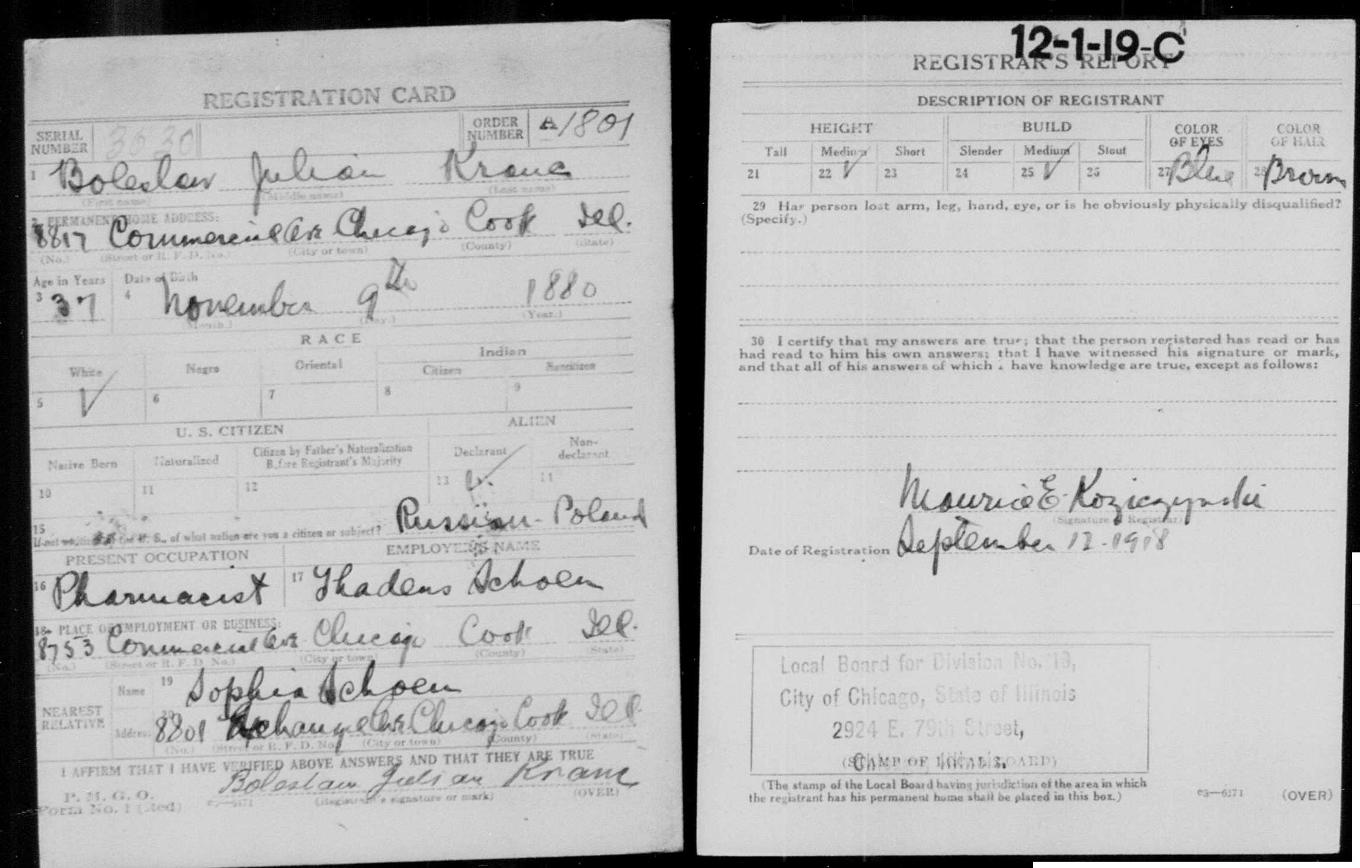 REGISTRATION CARD
SERIAL NUMBER 3630 ORDER NUMBER A1801
1 Boleslaw Julian Kranc
(First name) (Middle name) (Last name)
2 PERMANENT HOME ADDRESS:
8817 Commercial Ave Chicago Cook Ill.
(No.) (Street or R. F. D. No.) (City or town) (County) (State)
Age in Years Date of Birth
3 37 4 November 9th 1880
(Month.) (Day.) (Year.)
RACE
White Negro Oriental Indian
Citizen Noncitizen
5 ✓ 6 7 8 9
U. S. CITIZEN ALIEN
Native Born Naturalized Citizen by Father's Naturalization Before Registrant's Majority Declarant Non-declarant
10 11 12 13 ✓ 14
15 If not a citizen of the U. S., of what nation are you a citizen or subject? Russian-Poland
PRESENT OCCUPATION EMPLOYER'S NAME
16 Pharmacist 17 Thadeus Schoen
18 PLACE OF EMPLOYMENT OR BUSINESS:
8753 Commercial Ave Chicago Cook Ill.
(No.) (Street or R. F. D. No.) (City or town) (County) (State)
NEAREST RELATIVE
Name 19 Sophia Schoen
Address 20 8801 Exchange Ave Chicago Cook Ill
(No.) (Street or R. F. D. No.) (City or town) (County) (State)
I AFFIRM THAT I HAVE VERIFIED ABOVE ANSWERS AND THAT THEY ARE TRUE
Boleslaw Julian Kranc
P. M. G. O.
Form No. 1 (Red) 03—6171 (Registrant's signature or mark) (OVER)
12-1-19-C
REGISTRAR'S REPORT
DESCRIPTION OF REGISTRANT
HEIGHT BUILD COLOR OF EYES COLOR OF HAIR
Tall Medium Short Slender Medium Stout
21 22 ✓ 23 24 25 ✓ 26 27 Blue 28 Brown
29 Has person lost arm, leg, hand, eye, or is he obviously physically disqualified?
(Specify.)
30 I certify that my answers are true; that the person registered has read or has
had read to him his own answers; that I have witnessed his signature or mark,
and that all of his answers of which I have knowledge are true, except as follows:
Maurice E. Koziczynski
(Signature of Registrar)
Date of Registration September 12-1918
Local Board for Division No. 19,
City of Chicago, State of Illinois
2924 E. 79th Street,
Chicago, Illinois.
(STAMP OF LOCAL BOARD)
(The stamp of the Local Board having jurisdiction of the area in which
the registrant has his permanent home shall be placed in this box.)
03—6171 (OVER)